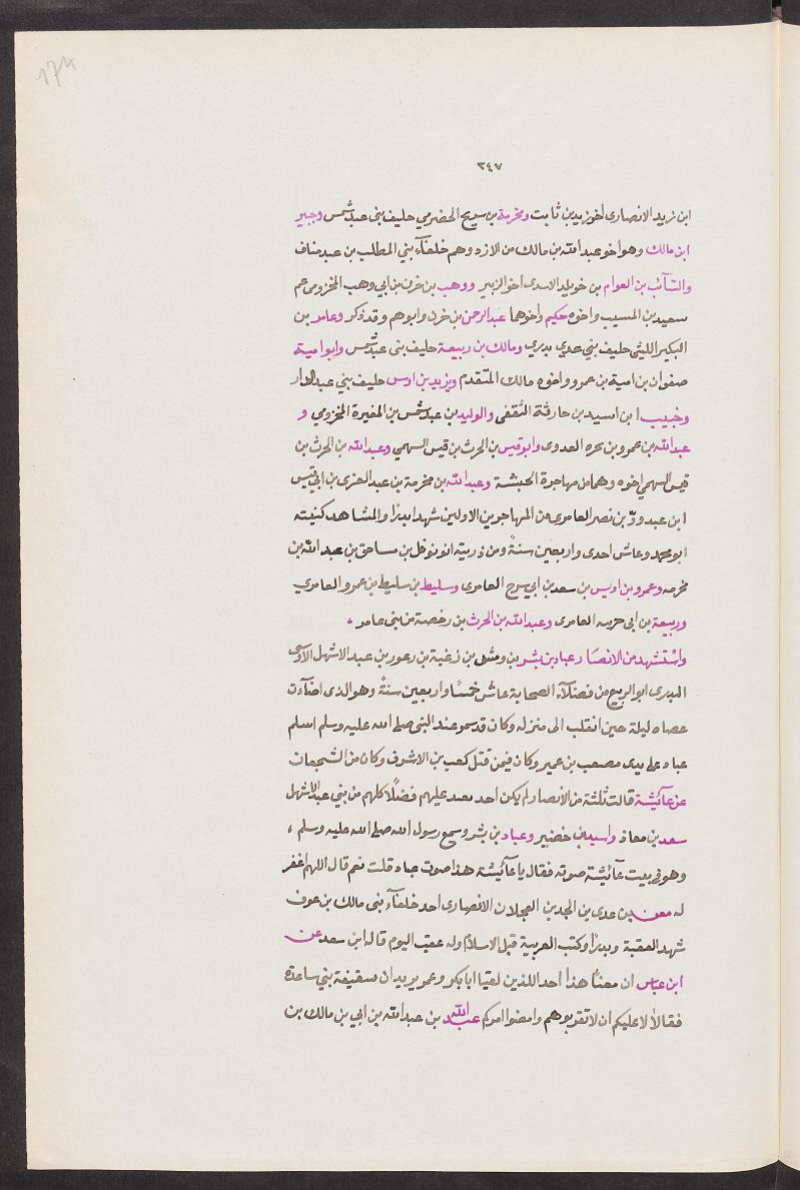 174
٢٤٧
ابن زيد الانصارى اخو زيد بن ثابت ومخرمة بن سريح الحضرمي حليف بنى عبد شمس وجبير
ابن مالك وهو اخو عبد الله بن مالك من الازد وهم خلفآء بني المطلب بن عبد مناف
والسّآئب بن العوام بن خويلد الاسدى اخو الزبير ووهب بن حزن بن ابي وهب المخزومى عم
سعيد بن المسيب واخوه حكيم واخوهما عبد الرحمن بن حزن وابوهم وقد ذكر وعامر بن
البكير الليثى حليف بني عدي بدري ومالك بن ربيعة حليف بنى عبد شمس وابو امية
صفوان بن امية بن عمرو واخوه مالك المتقدم ويزيد بن اوس حليف بني عبد الدار
وخبيب ابن اسيد بن حارثة الثقفى والوليد بن عبد شمس بن المغيرة المخزومي و
عبد الله بن عمرو بن بحره العدوى وابو قيس بن الحرث بن قيس السهمي وعبد الله بن الحرث بن
قيس السهمي اخوه وهما من مهاجرة الحبشة وعبد الله بن مخرمة بن عبد العزى بن ابي قيس
ابن عبد ودّ بن نصر العامرى من المهاجرين الاولين شهد بدرًا والمشاهد كنيته
ابو محمد وعاش احدى واربعين سنةً ومن ذريته نوفل بن مساحق بن عبد الله بن
مخرمه وعمرو بن اويس بن سعد بن ابي سرح العامرى وسليط بن سليط بن عمرو العامري
وربيعة بن ابى خرشه العامرى وعبد الله بن الحرث بن رخصة من بنى عامر .
واسْتشهد من الانصَار عباد بن بشر بن وقش بن زغبة بن زعور بن عبد الاشهل الاوسى
البدرى ابو الربيع من فضلآء الصحابة عاش خمسًا واربعين سنةً وهو الذى اضآءت
عصاه ليلة حين انقلب الى منزله وكان قد سمر عند النبى صلى الله عليه وسلم اسلم
عباد على يدى مصعب بن عمير وكان فيمن قتل كعب بن الاشرف وكان من الشجعان
عن عآئيشة قالت ثلثة من الأنصار لم يكن احد يعتد عليهم فضلًا كلهم من بني عبد الاشهل
سعد بن معاذ واسيد بن خضير وعباد بن بشر وسمع رسول الله صلى الله عليه وسلم ،
وهو فى بيت عآئيشة صوته فقال يا عآئيشة هذا صوت عباد قلت نعم قال اللهم اغفر
له معن بن عدى بن الجد بن العجلان الانصارى احد خلفآء بنى مالك بن عوف
شهد العقبة وبدرًا وكتب العربية قبل الاسلام وله عقب اليوم قاله ابن سعد عن
ابن عباس ان معنًا هذا احد اللذين لقيا ابا بكر وعمر يريدان سقيفة بني ساعدة
فقالا لا عليكم ان لا تقربوهم وامضوا امركم عبد الله بن عبد الله بن ابي بن مالك بن